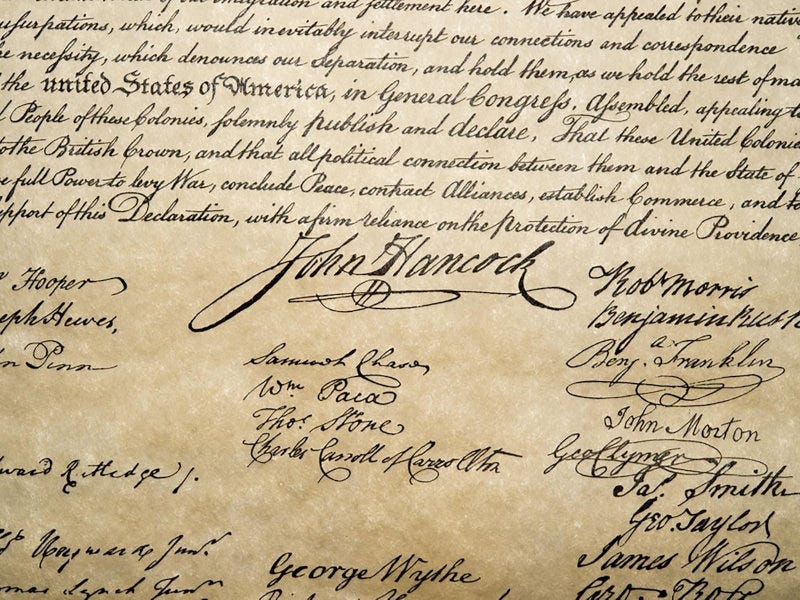 emigration and settlement here. We have appealed to their native
usurpations, which, would inevitably interrupt our connections and correspondence
he necessity, which denounces our Separation, and hold them, as we hold the rest of ma
the united States of America, in General Congress, Assembled, appealing to
People of these Colonies, solemnly publish and declare, That these United Colonie
to the British Crown, and that all political connection between them and the State of
full Power to levy War, conclude Peace, contract Alliances, establish Commerce, and to
pport of this Declaration, with a firm reliance on the protection of divine Providence
John Hancock
Hooper
eph Hewes,
n Penn
ward Rutledge /.
Heyward Junr.
omas Lynch Junr.
Samuel Chase
Wm. Paca
Thos. Stone
Charles Carroll of Carrollton
George Wythe
Robt Morris
Benjamin Rush
Benja. Franklin
John Morton
Geo Clymer
Jas. Smith
Geo. Taylor
James Wilson
Geo. Ross